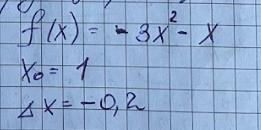 f(x) = -3x² - x
x₀ = 1
Δx = -0,2